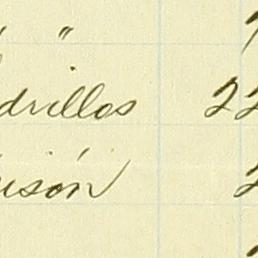 "
drillos 22
isón 2